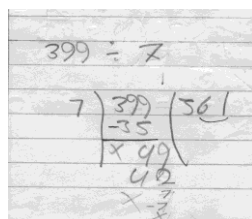 399 ÷ 7
7 ) 399 ( 561
-35
x 49
42
x 7